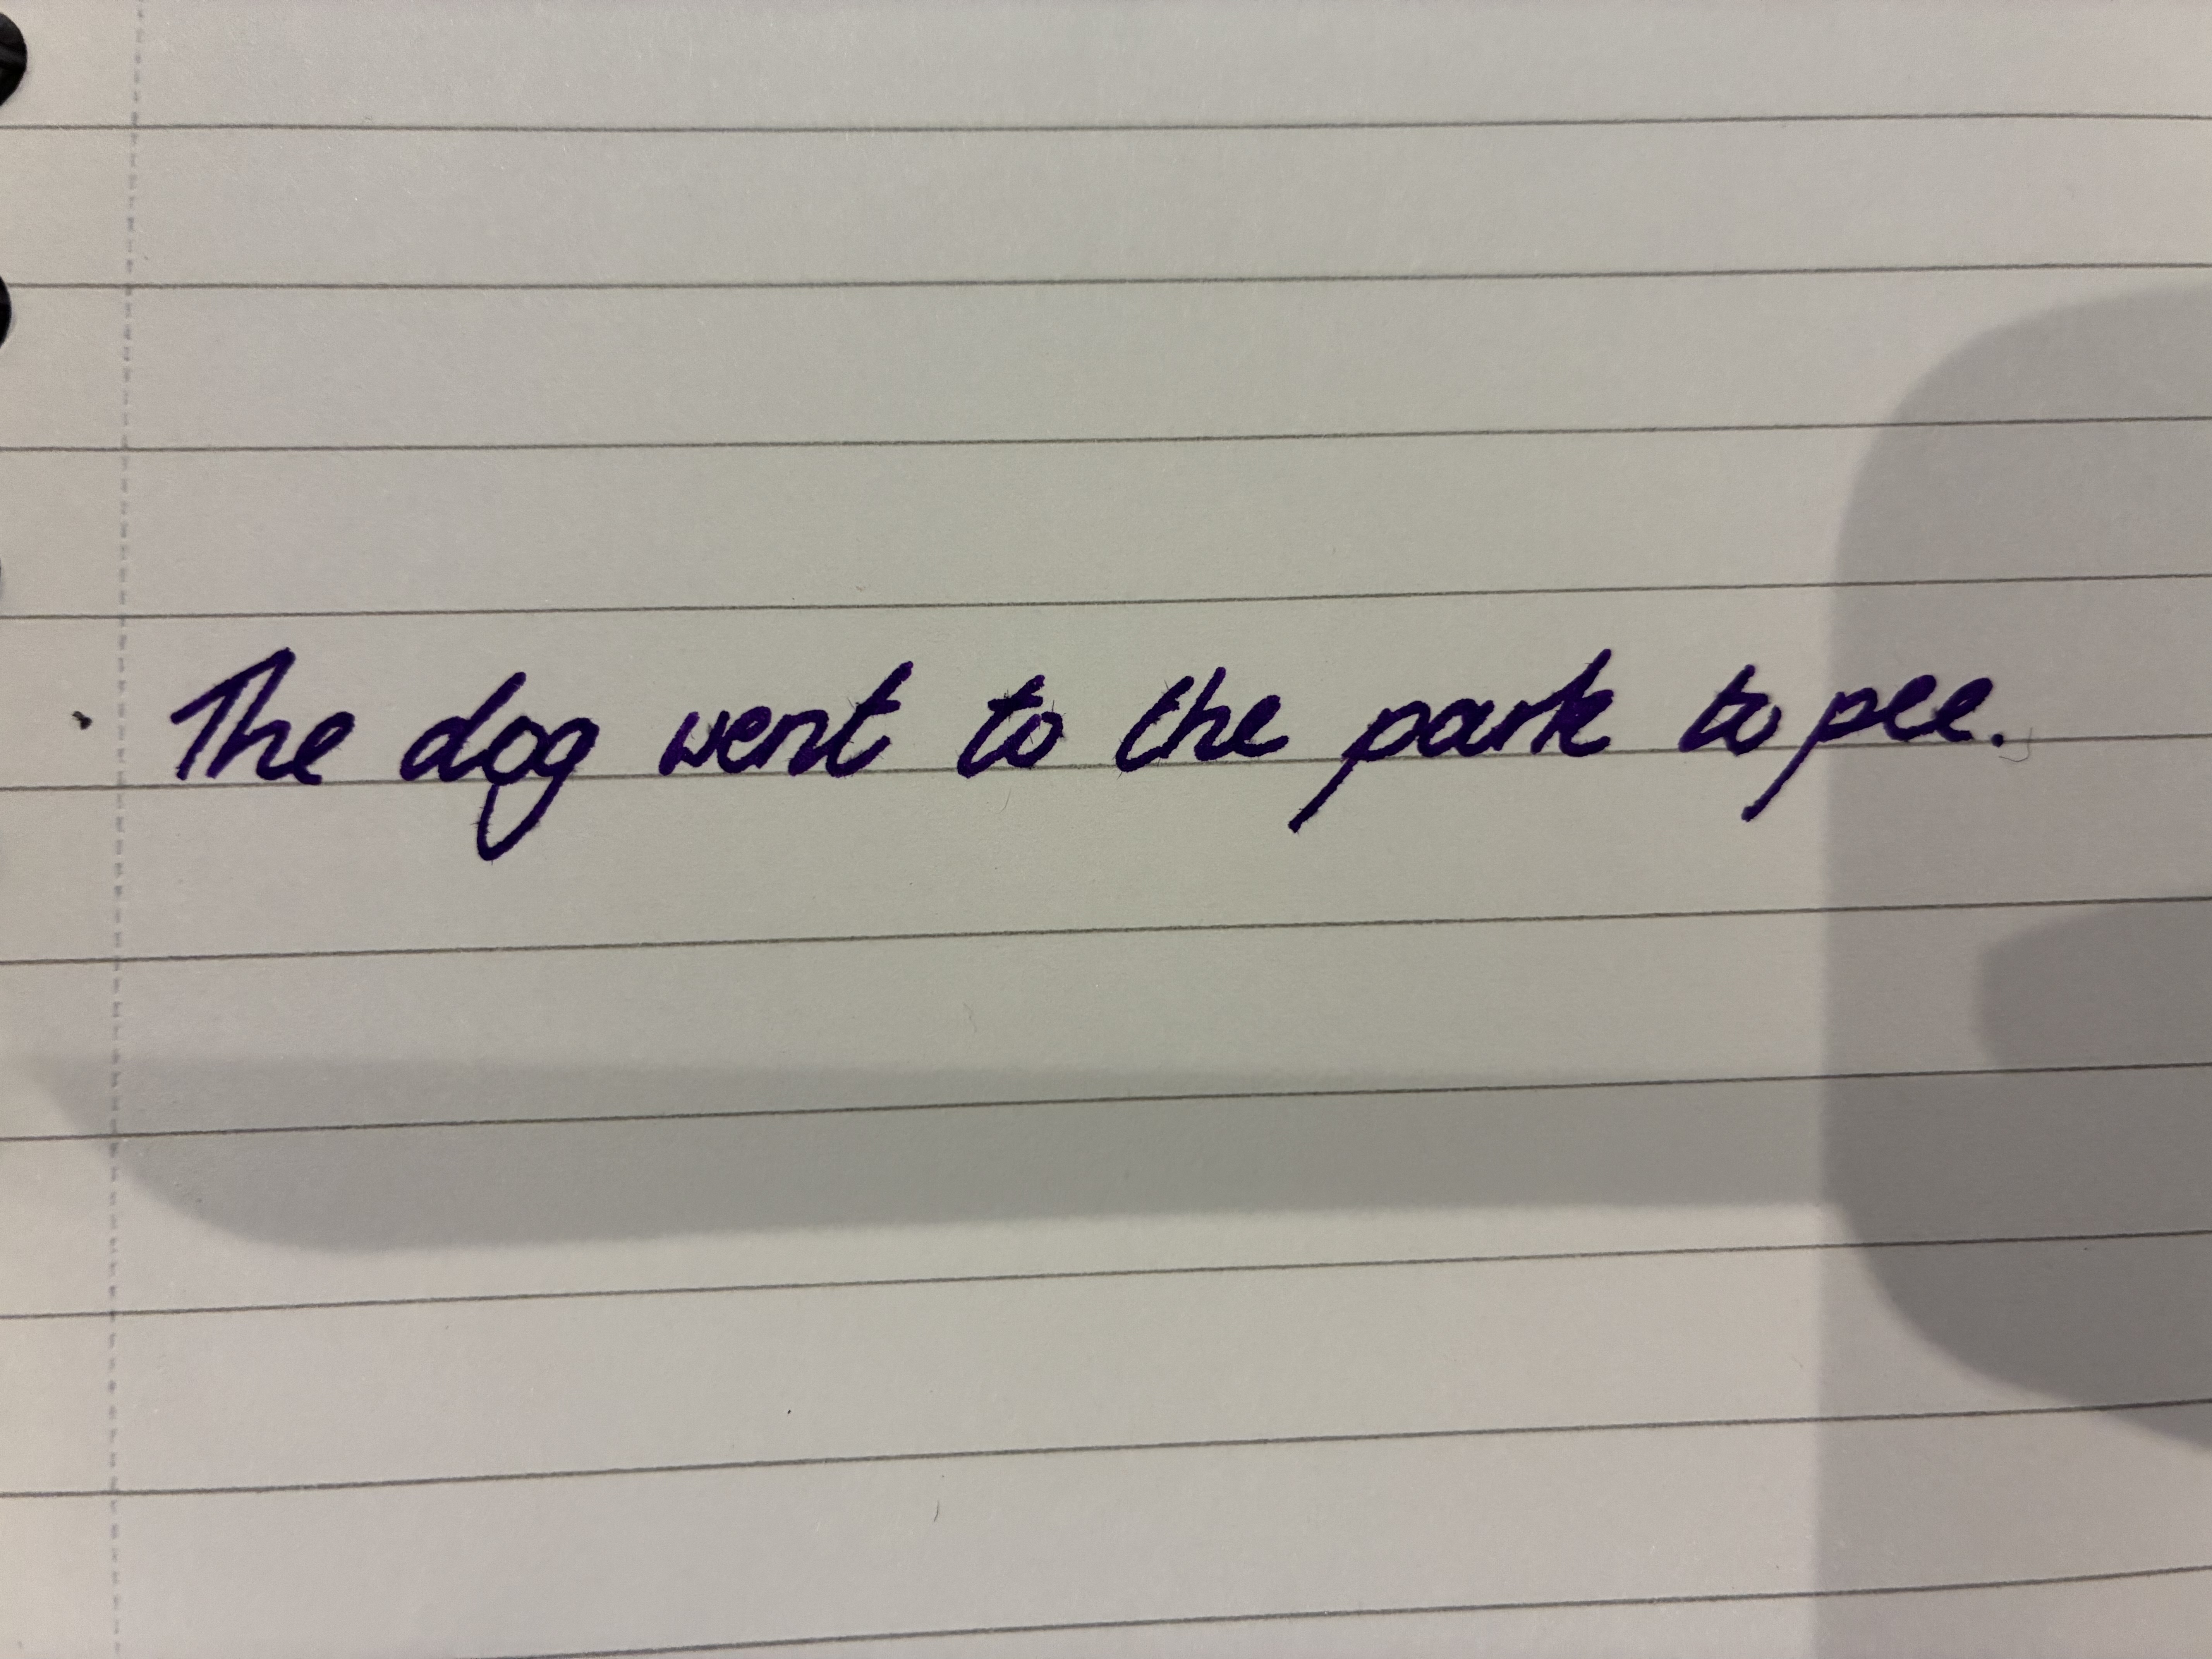 The dog went to the park to pee.